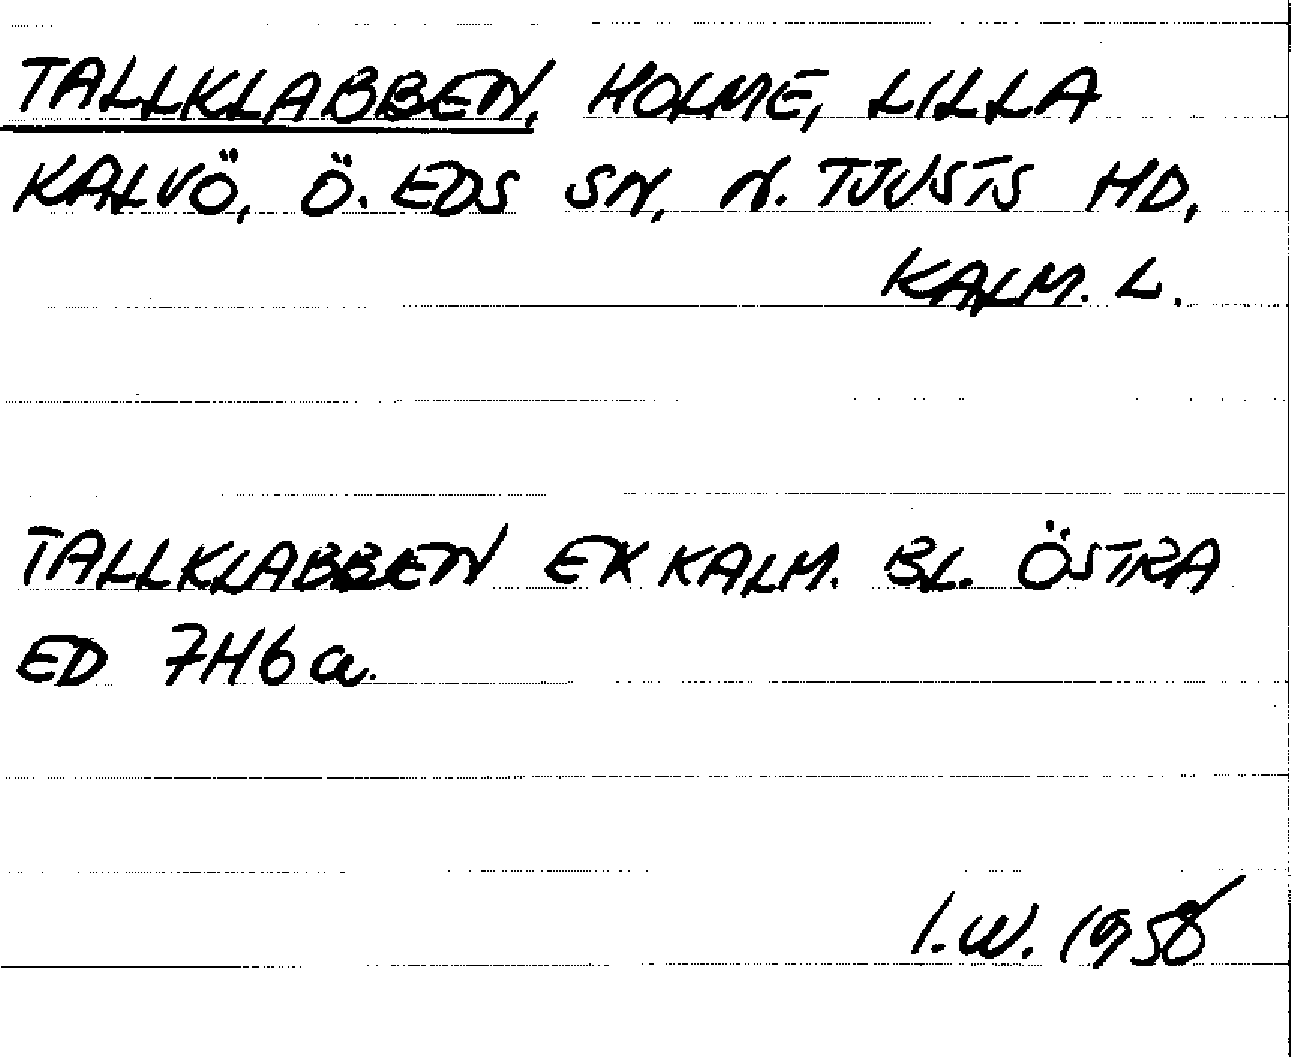 TALLKLABBEN, HOLME, LILLA
KALVÖ, Ö. EDS SN, N. TJUSTS HD,
KALM. L.
TALLKLABBEN EK KALM. BL. ÖSTRA
ED 7H6a.
I.W. 1958